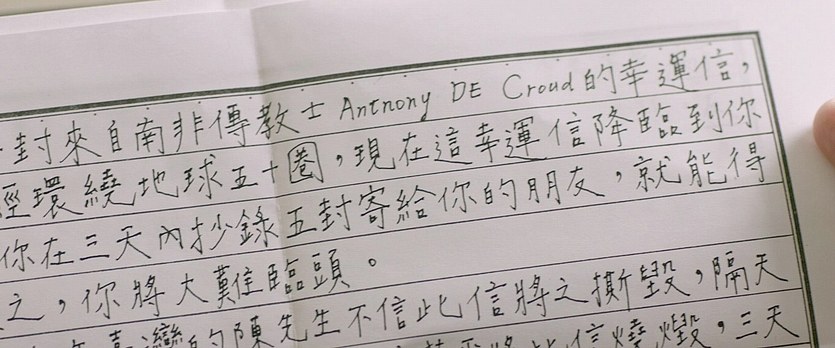 封來自南非傳教士 Antnony DE Croud的幸運信,
經環繞地球五十圈,現在這幸運信降臨到你
你在三天內抄錄五封寄給你的朋友,就能得
之,你將大難臨頭。
臺灣的陳先生不信此信將之撕毀,隔天
將此信燒燬,三天